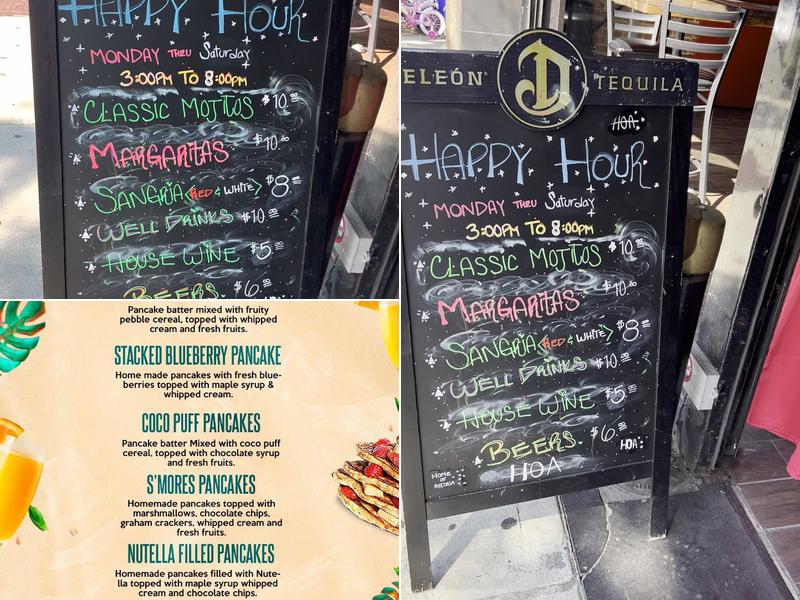 HAPPY HOUR
MONDAY THRU Saturday
3:00PM TO 8:00PM
CLASSIC MOJITOS $10.00
MARGARITAS $10.00
SANGRIA <RED & WHITE> $8.00
WELL DRINKS $10.00
HOUSE WINE $5.00
BEERS $6.00
Pancake batter mixed with fruity
pebble cereal, topped with whipped
cream and fresh fruits.
STACKED BLUEBERRY PANCAKE
Home made pancakes with fresh blue-
berries topped with maple syrup &
whipped cream.
COCO PUFF PANCAKES
Pancake batter Mixed with coco puff
cereal, topped with chocolate syrup
and fresh fruits.
S'MORES PANCAKES
Homemade pancakes topped with
marshmallows, chocolate chips,
graham crackers, whipped cream and
fresh fruits.
NUTELLA FILLED PANCAKES
Homemade pancakes filled with Nute-
lla topped with maple syrup whipped
cream and chocolate chips.
ELEÓN D TEQUILA
HOA
HAPPY HOUR
MONDAY THRU Saturday
3:00PM TO 8:00PM
CLASSIC MOJITOS $10.00
MARGARITAS $10.00
SANGRIA <RED & WHITE> $8.00
WELL DRINKS $10.00
HOUSE WINE $5.00
BEERS. $6.00
HOA
HOA
HOME
OF
ASTORIA